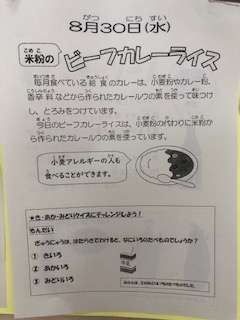 がつ にち すい
8月30日(水)
こめ こ
米粉の ビーフカレーライス
毎月食べている給食のカレーは、小麦粉やカレー粉、
香辛料などから作られたカレールウの素を使って味つけ
し、とろみをつけています。
今日のビーフカレーライスは、小麦粉の代わりに米粉か
ら作られたカレールウの素を使っています。
小麦アレルギーの人も
食べることができます。
★き・あか・みどりクイズにチャレンジしよう！
もんだい
ぎゅうにゅうは、はたらきでわけると、なにいろのたべものでしょうか？
① きいろ
② あかいろ
③ みどりいろ